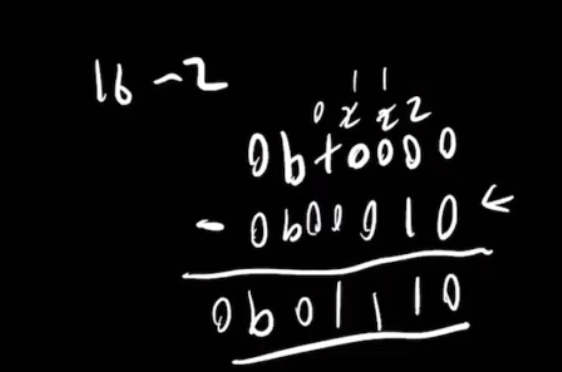 16 - 2
1 1
0 2 2 2
0b10000
- 0b00010 ←
0b01110